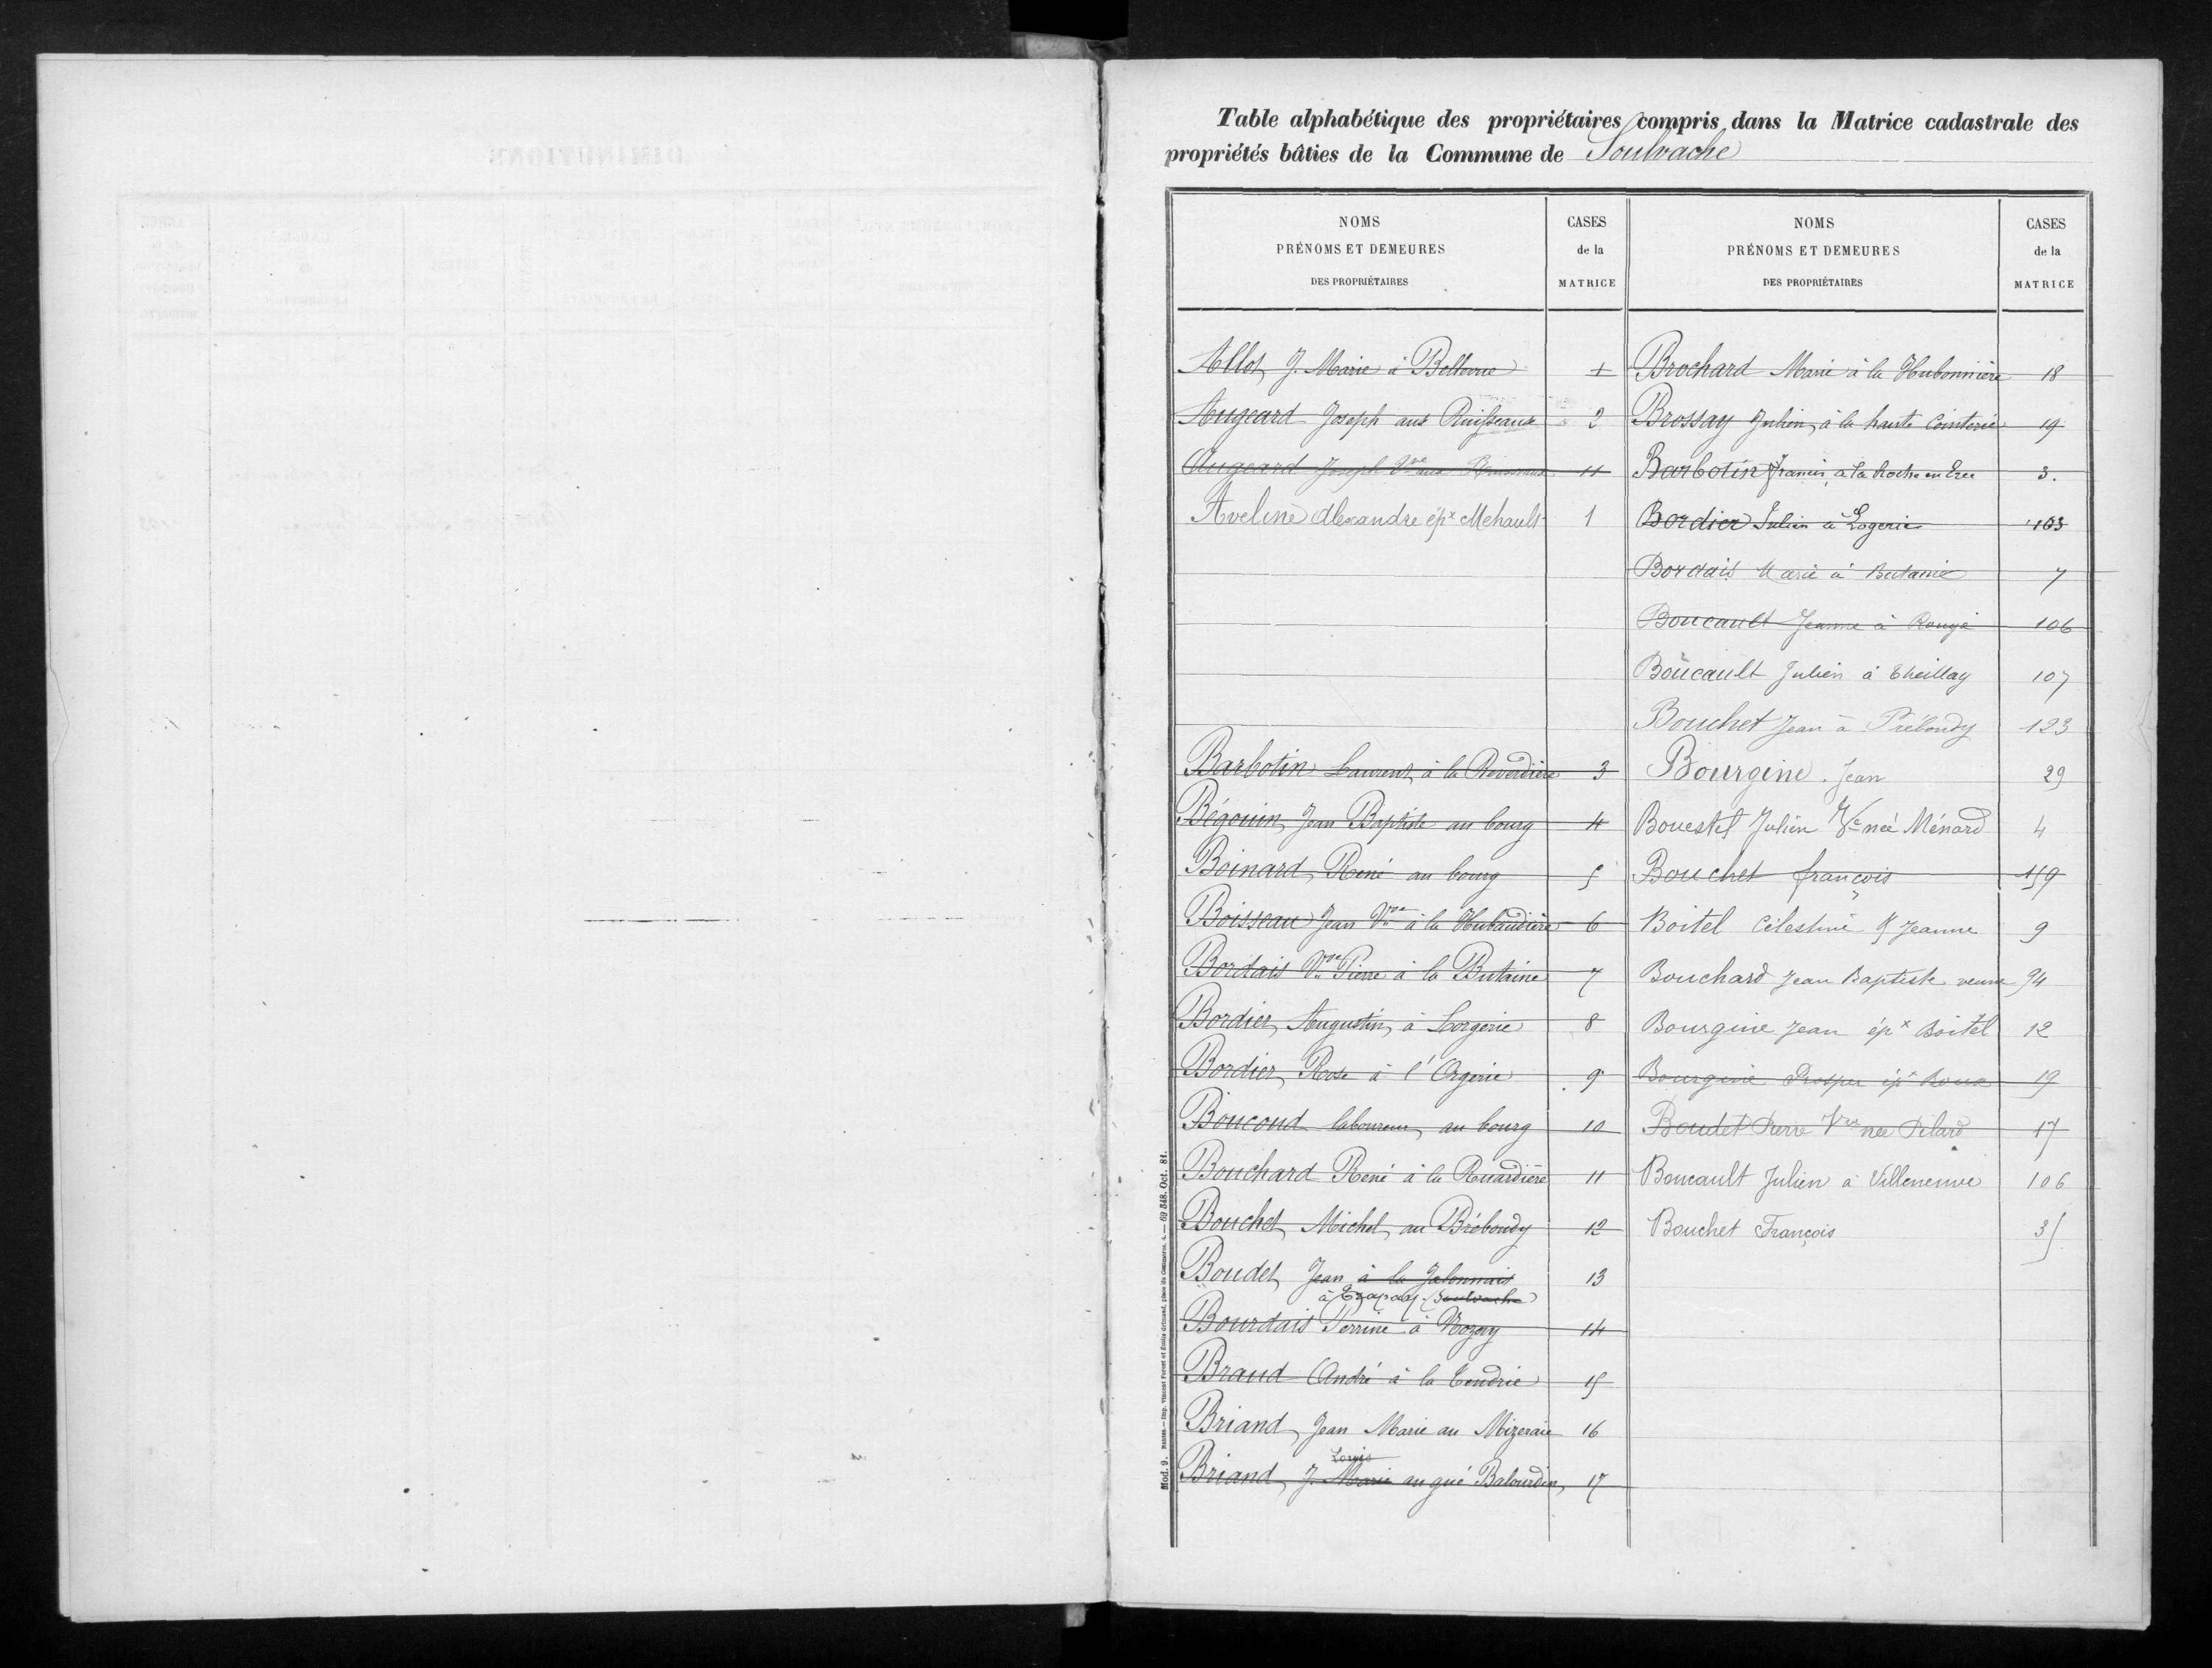 Table alphabétique des propriétaires compris dans la Matrice cadastrale des
propriétés bâties de la Commune de Soulvache
NOMS
PRÉNOMS ET DEMEURES
DES PROPRIÉTAIRES
CASES
de la
MATRICE
NOMS
PRÉNOMS ET DEMEURES
DES PROPRIÉTAIRES
CASES
de la
MATRICE
Allot J. Marie à Bellevue 1
Augeard Joseph aux Ruisseaux 2
Augeard Joseph Vve aux Ruisseaux 11
Aveline Alexandre épx Mehault 1
Barbotin Laurent à la Reverdière 3
Bégouin Jean Baptiste au bourg 4
Boinard René au bourg 5
Boisseau Jean Vve à la Hubaudière 6
Bordais Vve Pierre à la Butaine 7
Bordier Augustin à Lorgerie 8
Bordier Rose à l'Orgerie 9
Boucoud laboureur au bourg 10
Bouchard René à la Ruardière 11
Bouchet Michel au Préboudy 12
Boudet Jean à la Jalonnais 13
à Soulvache
Bourdais Perrine à Nozay 14
Braud André à la 15
Briand Jean Marie au Mizeraie 16
Louis
Briand J. Marie au gué Balourdin 17
Brochard Marie à la Hubonnière 18
Brossay Julien à la haute Cointerie 19
Barbotin Francis à la Roche en Erée 3.
Bordier Julien à Logerie 103
Bordais Marie à Butaine 7
Boucault Jeanne à Rougé 106
Boucault Julien à Theillay 107
Bouchet Jean à Préboudy 123
Bourgine Jean 29
Bouestel Julien Ve née Ménard 4
Bouchet françois 159
Boitel Célestine & Jeanne 9
Bouchard Jean Baptiste veuve 94
Bourgine Jean épx Boitel 12
Bourgine Prosper épx Roux 19
Boudet Pierre Vve née Pilard 17
Boucault Julien à Villeneuve 106
Bouchet François 35
Mod. 9. Nantes. — Imp. Vincent Forest et Émile Grimaud, place du Commerce, 4. — 69 848. Oct. 81.